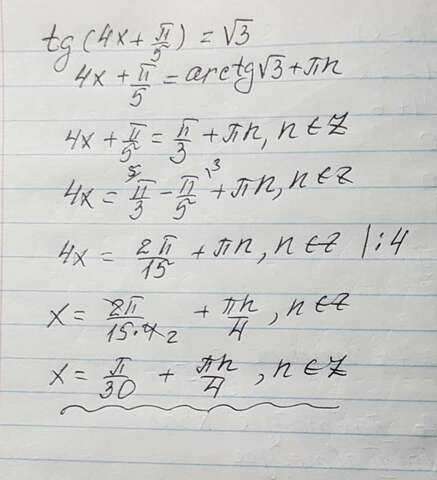 tg(4x + π/5) = √3
4x + π/5 = arctg√3 + πn
4x + π/5 = π/3 + πn, n ∈ Z
4x = ⁵π/3 - π/5 ⁽³ + πn, n ∈ Z
4x = 2π/15 + πn, n ∈ Z |:4
x = 2π/15·4 2 + πn/4, n ∈ Z
x = π/30 + πn/4, n ∈ Z